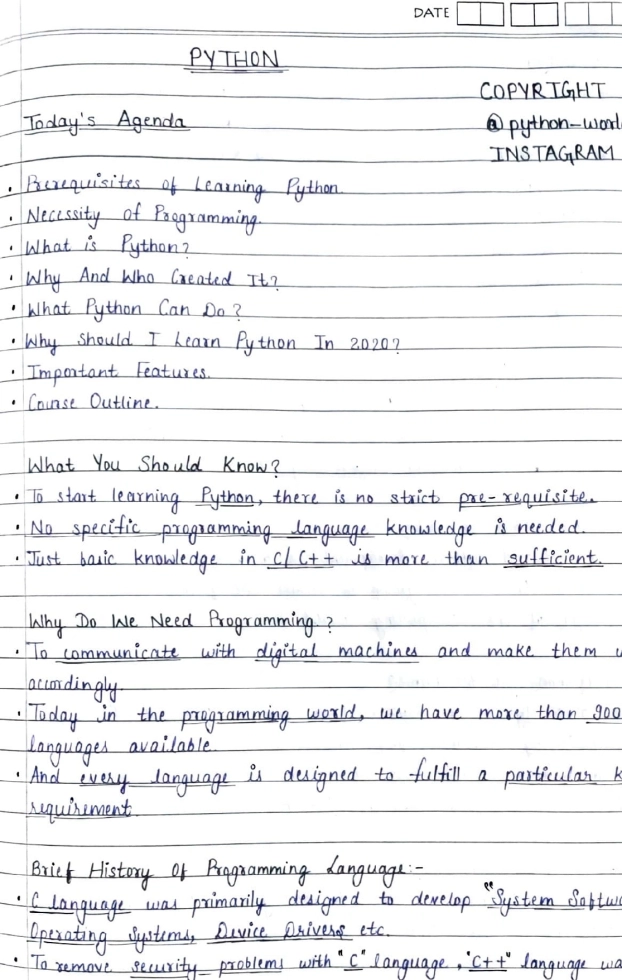 DATE
PYTHON
COPYRIGHT
Today's Agenda
@ python-worl
INSTAGRAM
• Prerequisites of Learning Python
• Necessity of Programming.
• What is Python?
• Why And Who Created It?
• What Python Can Do?
• Why Should I Learn Python In 2020?
• Important Features.
• Course Outline.
What You Should Know?
• To start learning Python, there is no strict pre-requisite.
• No specific programming language knowledge is needed.
• Just basic knowledge in C/C++ is more than sufficient.
Why Do We Need Programming?
• To communicate with digital machines and make them
accordingly.
• Today in the programming world, we have more than 900
languages available.
• And every language is designed to fulfill a particular k
requirement.
Brief History Of Programming Language:-
• C language was primarily designed to develop "System Softw
Operating Systems, Device Drivers etc.
• To remove security problems with "C" language, "C++" language wa